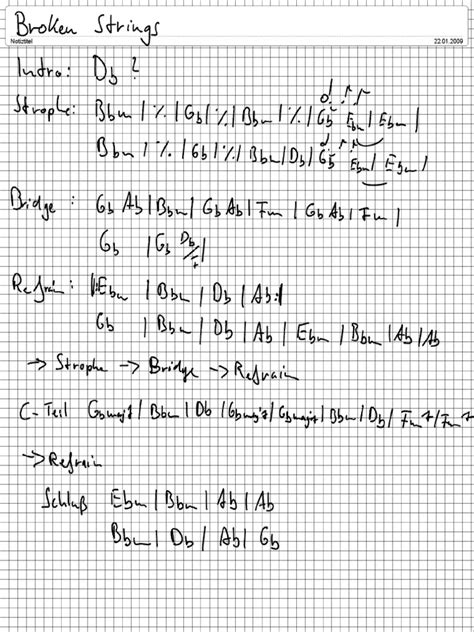 Broken Strings
Notiztitel 22.01.2009
Intro: Db ?
Strophe: Bbm | ٪ | Gb | ٪ | Bbm | ٪ | Gb Ebm | Ebm |
Bbm | ٪ | Gb | ٪ | Bbm | Db | Gb Ebm | Ebm |
Bridge: Gb Ab | Bbm | Gb Ab | Fm | Gb Ab | Fm |
Gb | Gb Db/F |
Refrain: |: Ebm | Bbm | Db | Ab :|
Gb | Bbm | Db | Ab | Ebm | Bbm | Ab | Ab
→ Strophe → Bridge → Refrain
C-Teil Gbmaj7 | Bbm | Db | Gbmaj7 | Gbmaj7 | Bbm | Db | Fm7 | Fm7
→ Refrain
Schluß Ebm | Bbm | Ab | Ab
Bbm | Db | Ab | Gb